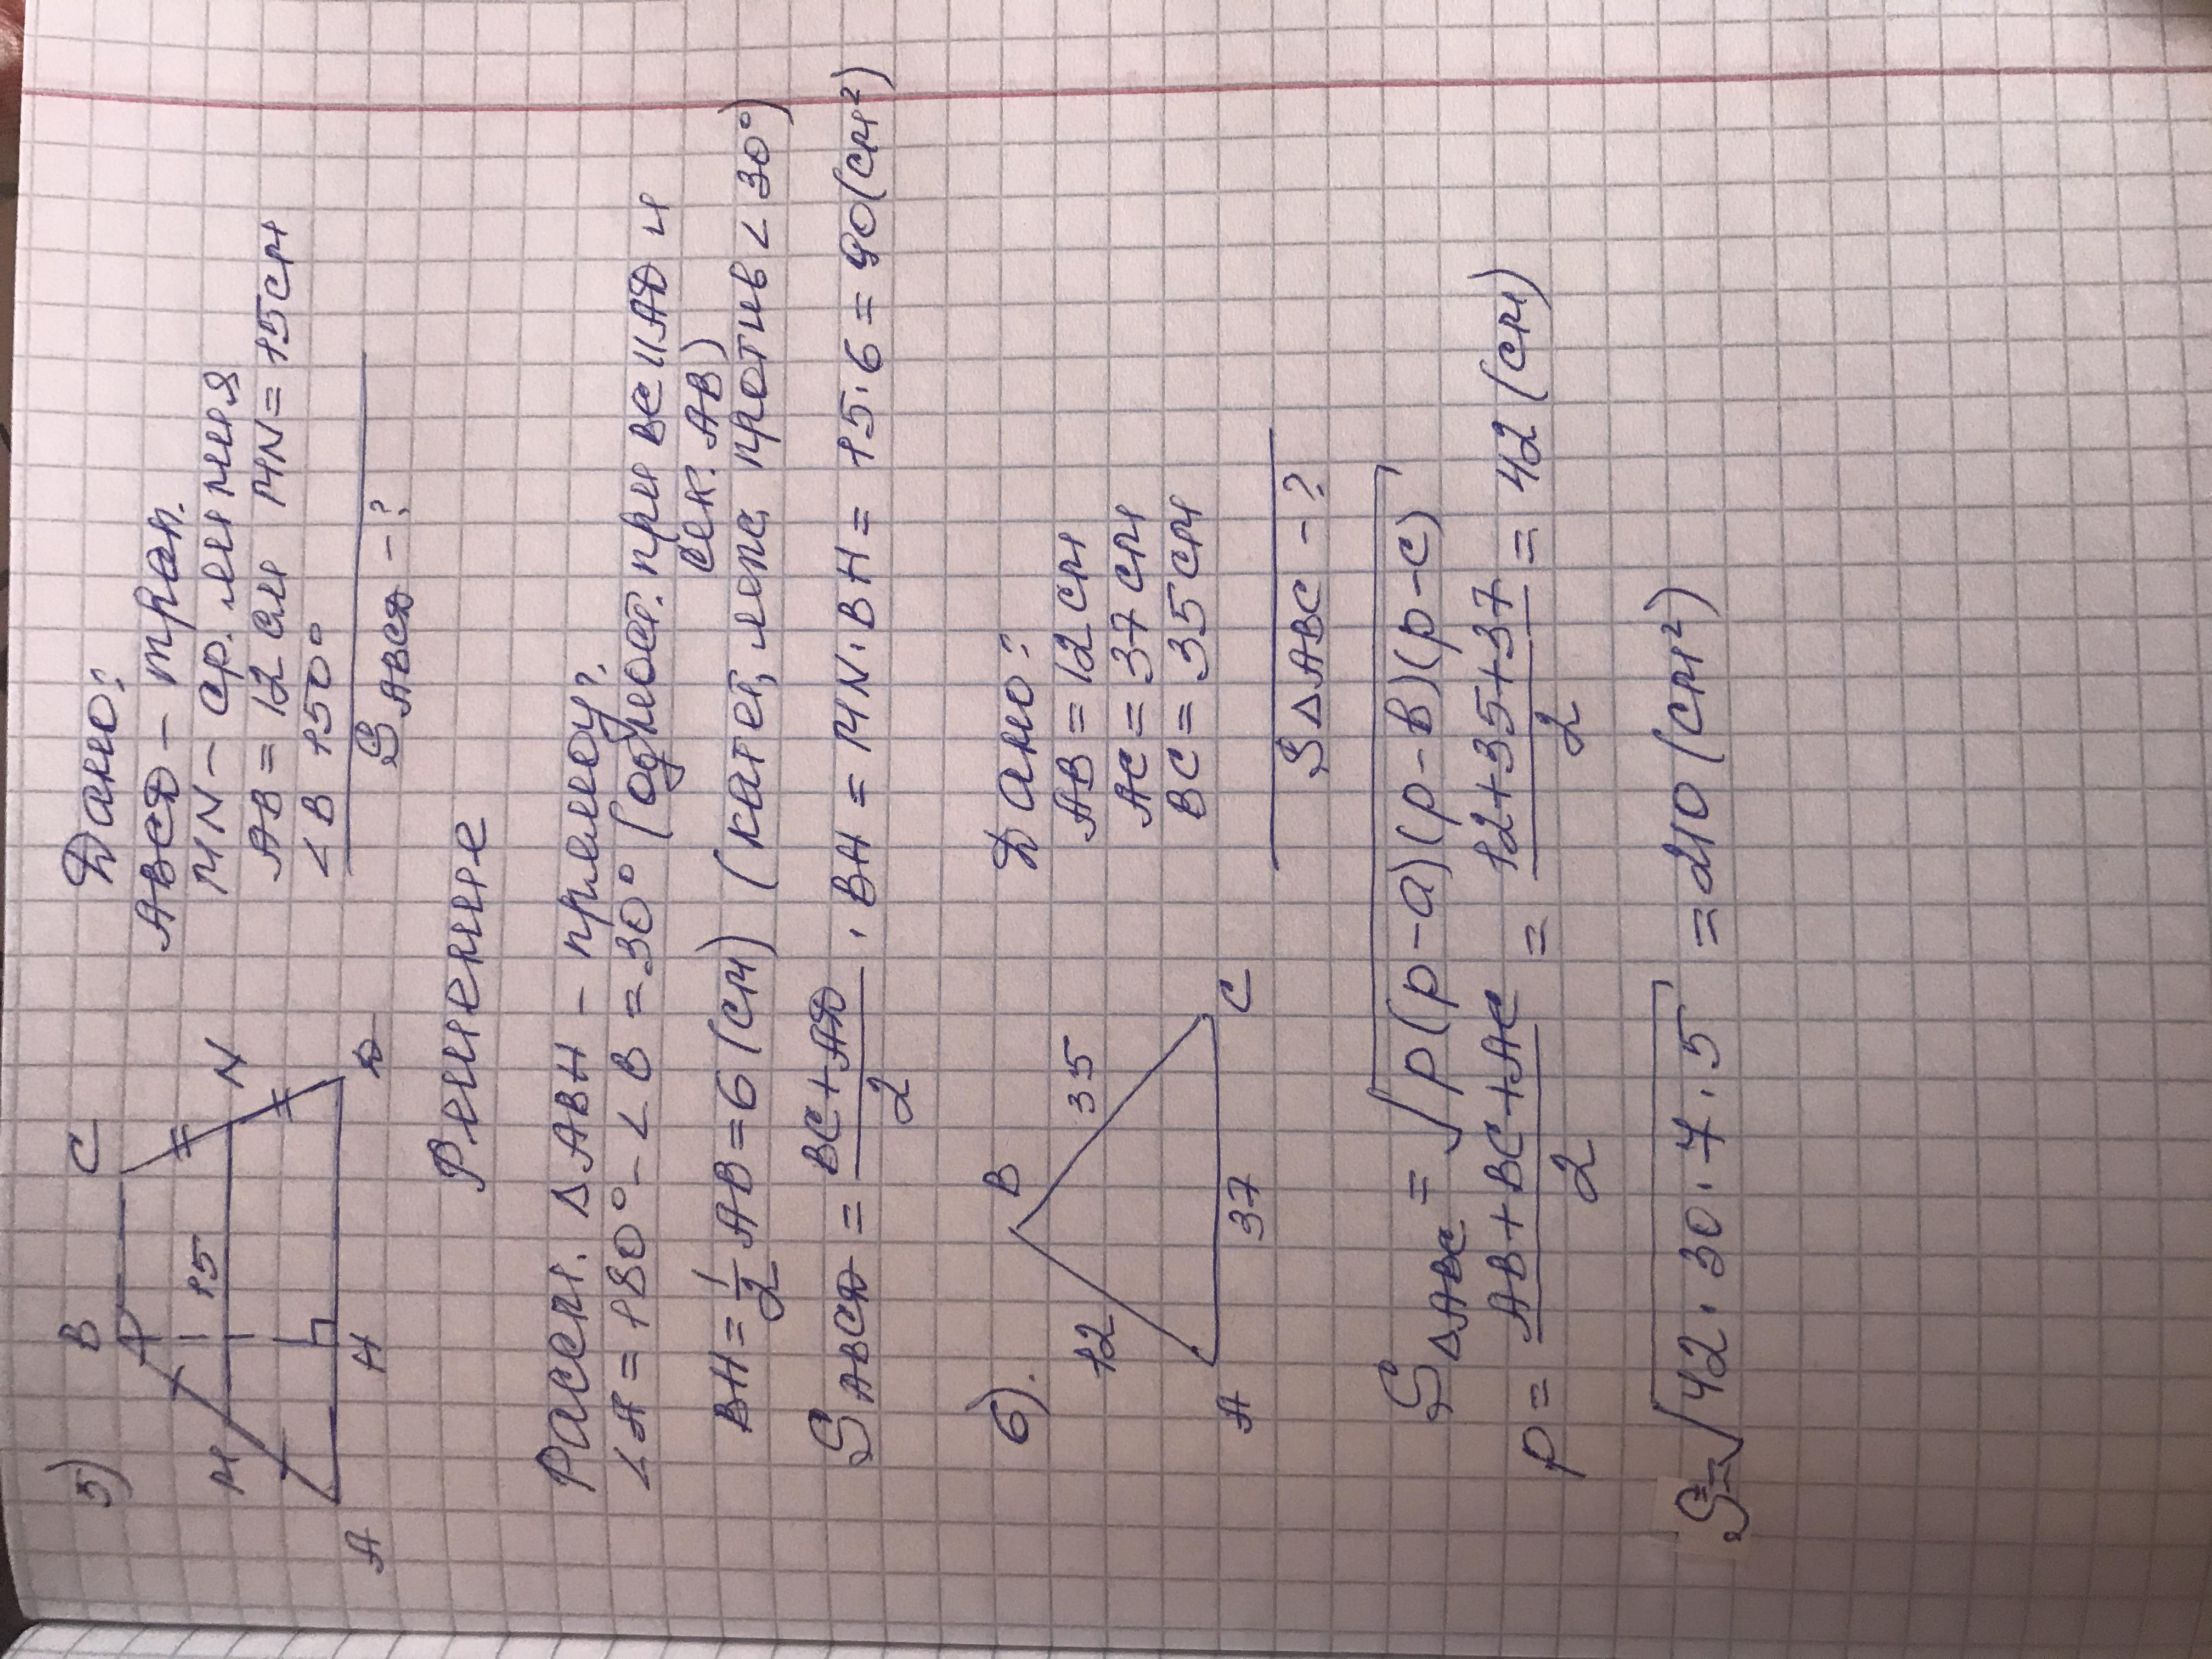 5)
B C
M 15 N
A H D
Дано:
ABCD - трап.
MN - ср. линия
AB = 12 см MN = 15 см
∠B 150°
S ABCD - ?
Решение
Рассм. △ABH - прямоуг.
∠A = 180° - ∠B = 30° (одност. при BC || AD и
сек. AB)
BH = 1/2 AB = 6 (см) (катет, леж. против ∠30°)
S ABCD = (BC + AD)/2 · BH = MN · BH = 15 · 6 = 90 (см²)
6).
B
12 35
A 37 C
Дано:
AB = 12 см
AC = 37 см
BC = 35 см
S △ABC - ?
S △ABC = √p(p-a)(p-b)(p-c)
p = (AB + BC + AC)/2 = (12+35+37)/2 = 42 (см)
S = √42 · 30 · 7 · 5 = 210 (см²)